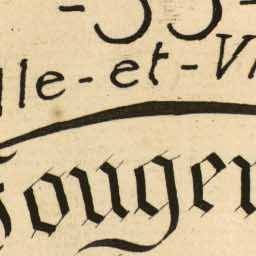 -35-
lle-et-Vi
Fouger